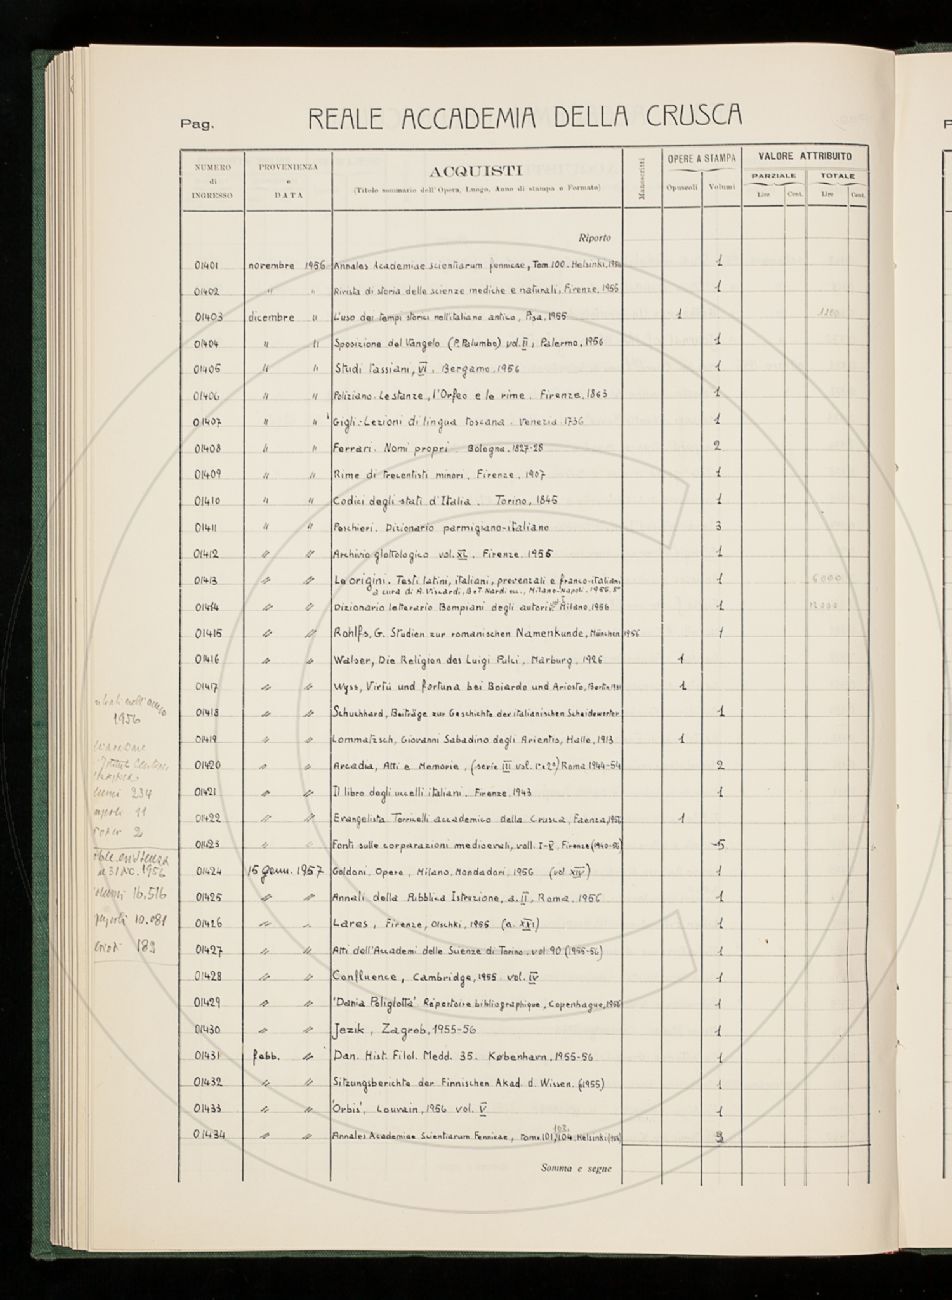 Pag. REALE ACCADEMIA DELLA CRUSCA
NUMERO di INGRESSO
PROVENIENZA e DATA
ACQUISTI
(Titolo sommario dell'Opera, Luogo, Anno di stampa e Formato)
Manoscritti
OPERE A STAMPA
Opuscoli Volumi
VALORE ATTRIBUITO
PARZIALE TOTALE
Lire Cent. Lire Cent.
Riporto
01401 novembre 1956 Annales Academiae scientiarum fennicae, Tom 100. Helsinki, 1956 1
01402 " " Rivista di storia delle scienze mediche e naturali, Firenze, 1955 1
01403 dicembre " L'uso dei tempi storici nell'italiano antico, Pisa, 1955 1 1200
01404 " " Sposizione del Vangelo (P. Palumbo) vol. II, Palermo, 1956 1
01405 " " Studi Tassiani, VI, Bergamo, 1956 1
01406 " " Poliziano. Le stanze, l'Orfeo e le rime. Firenze, 1863 1
01407 " " Gigli. Lezioni di lingua toscana. Venezia 1736 1
01408 " " Ferrari. Nomi propri. Bologna, 1827-28 2
01409 " " Rime di trecentisti minori. Firenze, 1907 1
01410 " " Codici degli stati d'Italia. Torino, 1845 1
01411 " " Peschieri. Dizionario parmigiano-italiano 3
01412 " " Archivio glottologico vol. XL. Firenze. 1955 1
01413 " " Le origini. Testi latini, italiani, provenzali e franco-italiani 1 6000
a cura di A. Viscardi, B. e T. Nardi ecc., Milano-Napoli, 1956, 8°
01414 " " Dizionario letterario Bompiani degli autori, Milano, 1956 1 12000
01415 " " Rohlfs, G. Studien zur romanischen Namenkunde, München 1956 1
01416 " " Walser, Die Religion des Luigi Pulci, Marburg, 1926 1
01417 " " Wyss, Virtù und fortuna bei Boiardo und Ariosto, Berlin 1931 1
01418 " " Schuchhard, Beiträge zur Geschichte der italianischen Scheidewörter 1
01419 " " Lommatzsch, Giovanni Sabadino degli Arientis, Halle, 1913 1
01420 " " Arcadia, Atti e Memorie, (serie III vol. 1° e 2°) Roma 1944-54 2
01421 " " Il libro degli uccelli italiani. Firenze, 1943 1
01422 " " Evangelista Torricelli accademico della Crusca, Faenza, 1956 1
01423 " " Fonti sulle corporazioni medioevali, voll. I-V, Firenze (1940-56) 5
01424 15 genn. 1957 Goldoni, Opere, Milano, Mondadori, 1956 (vol. XIV) 1
01425 " " Annali della Pubblica Istruzione, a. II, Roma, 1956 1
01426 " " Lares, Firenze, Olschki, 1955 (a. XXI) 1
01427 " " Atti dell'Accademi delle Scienze di Torino. vol. 90 (1955-56) 1
01428 " " Confluence, Cambridge, 1955 vol. IV 1
01429 " " 'Dania Poliglotta' Répertoire bibliographique, Copenhague, 1956 1
01430 " " Jezik, Zagreb, 1955-56 1
01431 febb. " Dan. Hist. Filol. Medd. 35. København, 1955-56 1
01432 " " Sitzungsberichte der Finnischen Akad. d. Wissen. (1955) 1
01433 " " 'Orbis', Louvain, 1956 vol. V 1
01434 " " Annales Academiae Scientiarum Fennicae, tom. 101, 103, 104, Helsinki (1956) 3
Somma e segue
1956
234
11
2
31 Dic. 1956
16.516
10.081
189